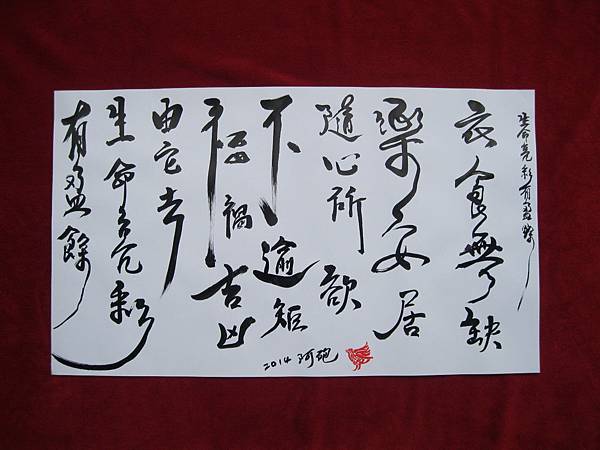 生命亮彩有盈餘
衣食無缺
樂安居
隨心所欲
不逾矩
福禍吉凶
由它去
生命亮彩
有盈餘
2014 阿砲